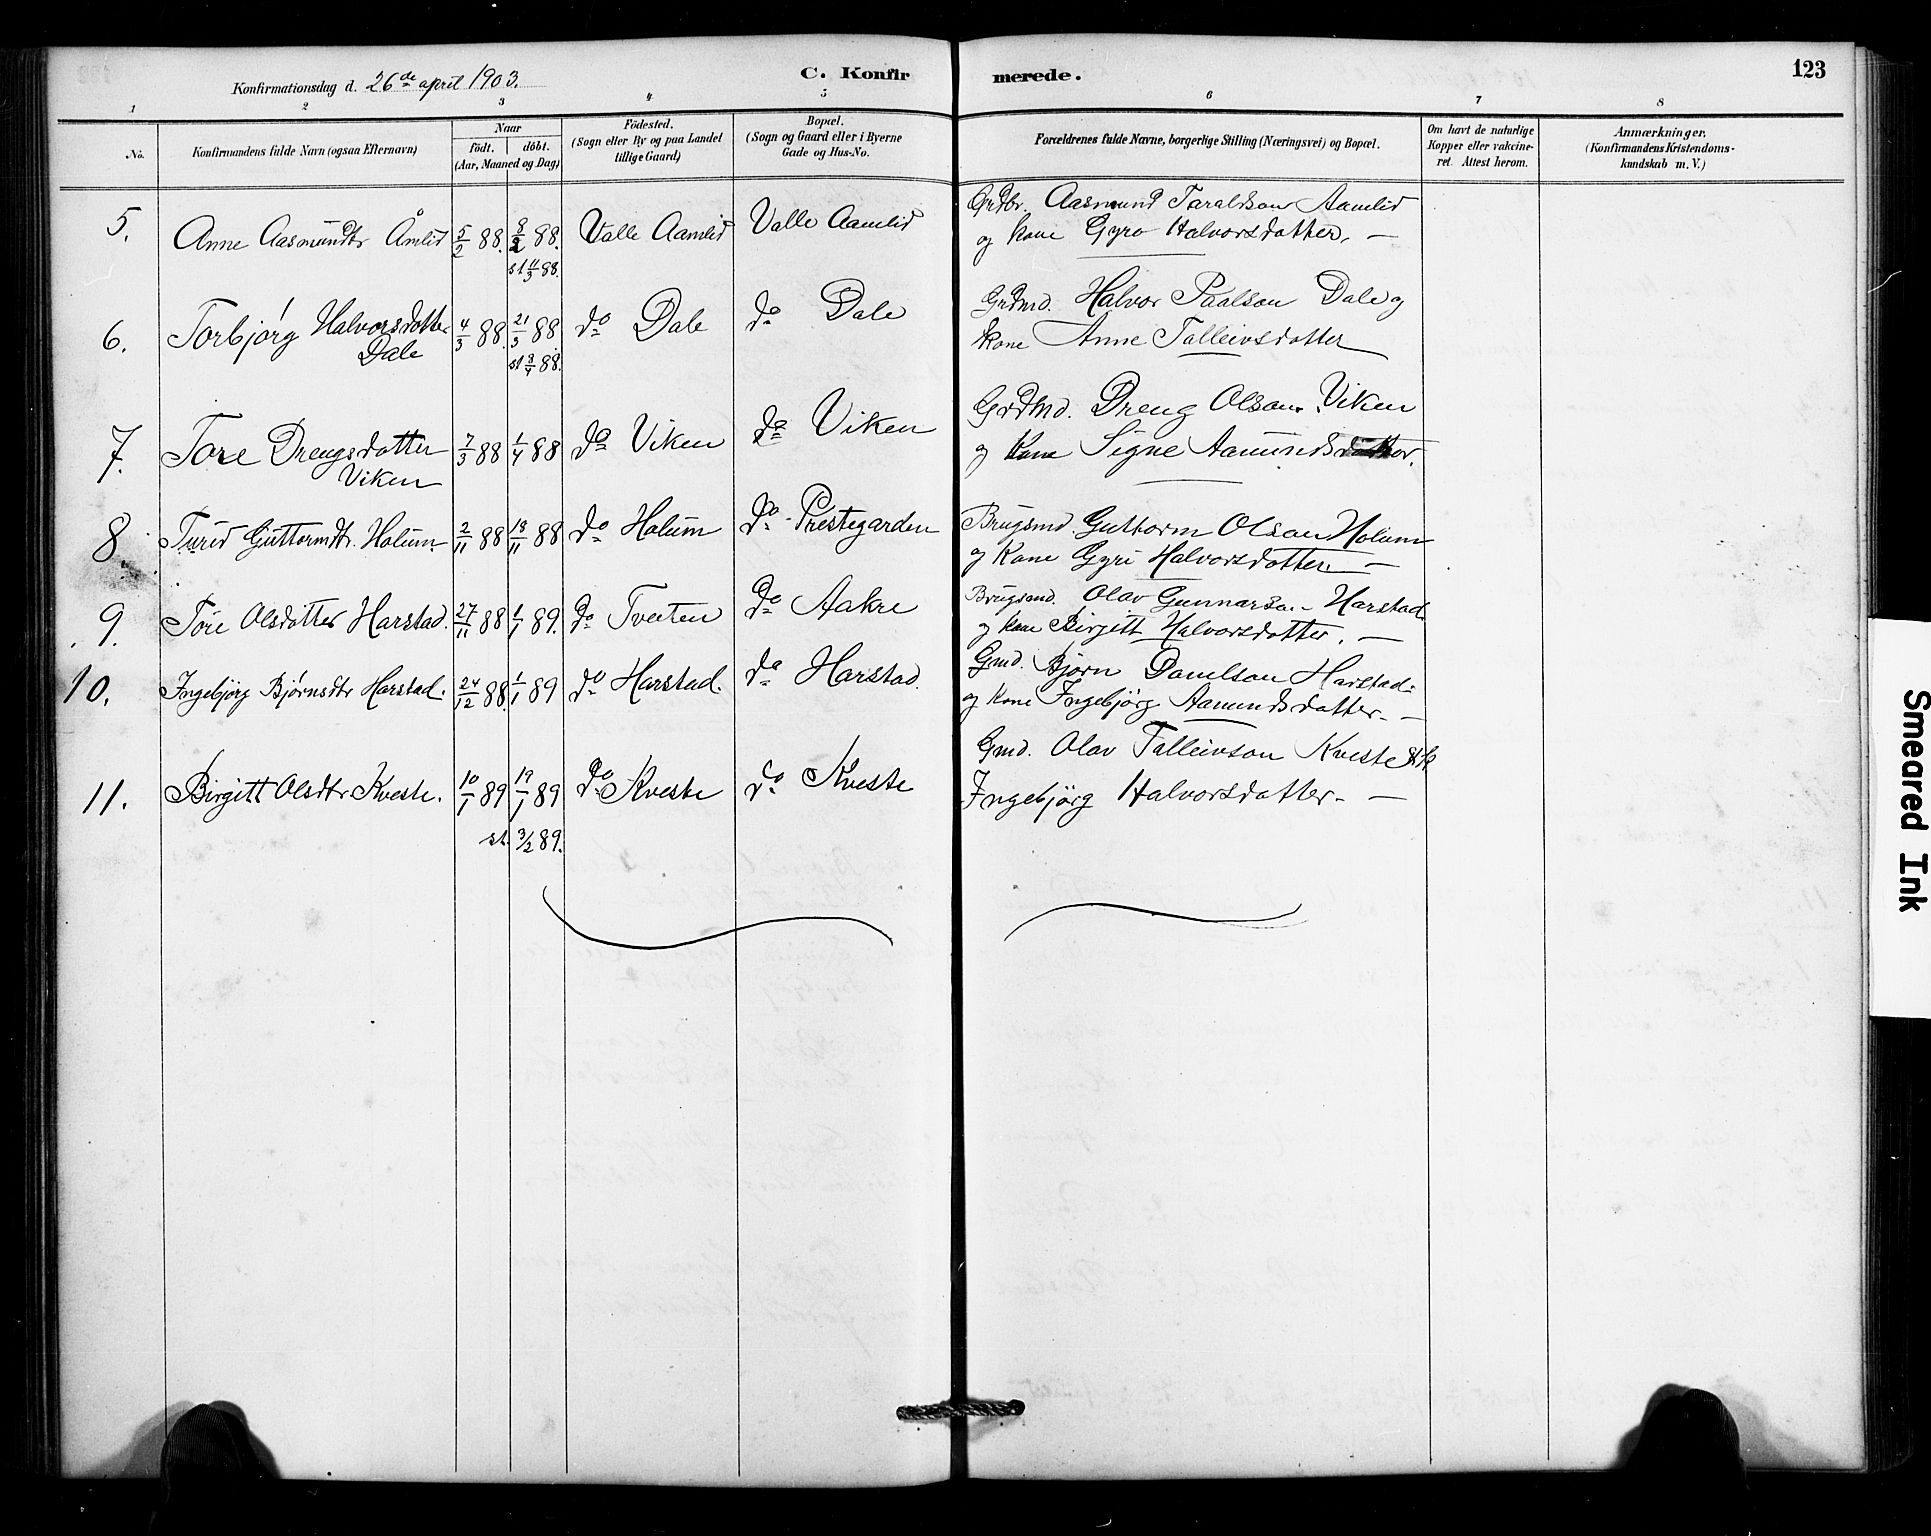 Konfirmationsdag d. 26de april 1903.
C. Konfirmerede.
123
1 2 3 4 5 6 7 8
No.
Konfirmandens fulde Navn (ogsaa Efternavn)
Naar
födt. döbt.
(Aar, Maaned og Dag)
Födested.
(Sogn eller By og paa Landet
tillige Gaard)
Bopæl.
(Sogn og Gaard eller i Byerne
Gade og Hus-No.
Forældrenes fulde Navne, borgerlige Stilling (Næringsvei) og Bopæl.
Om havt de naturlige
Kopper eller vakcine-
ret. Attest herom.
Anmærkninger.
(Konfirmandens Kristendoms-
kundskab m. V.)
5. Anne Aasmundtr Åmlid 5/2 88. 8/2 88. Valle Aamlid Valle Aamlid Grdbr. Aasmund Taraldson Aamlid
st 11/3 88. og kone Gyro Halvorsdatter. —
6. Torbjørg Halvorsdatter 4/3 88. 21/3 88. do Dale do Dale Grdmd. Halvor Paalson Dale og
Dale st 8/4 88. kone Anne Talleivsdatter
7. Tore Drengsdatter 7/3 88 1/4 88 do Viken do Viken Grdmd. Dreng Olson Viken
Viken og kone Signe Aamundsdatter.
8 Turid Guttormdtr. Holum. 2/11 88 18/11 88 do Holum do Prestegarden Brugsmd. Guttorm Olson Holum
og kone Gyri Halvorsdatter —
9. Tore Olsdatter Harstad. 27/11 88 1/1 89. do Tveiten do Aakre Brugsmd. Olav Gunnarson Harstad
og kone Birgitt Halvorsdatter. —
10. Ingebjørg Bjørnsdtr Harstad. 24/12 88. 1/1 89 do Harstad. do Harstad. Gmd. Bjørn Danelson Harstad
og kone Ingebjörg Aamundsdatter. —
11. Birgitt Olsdtr Kveste. 10/1 89 19/1 89 do Kveste do Kveste Gmd. Olav Talleivson Kveste
st. 3/2 89. Ingebjörg Halvorsdatter. —
Smeared Ink